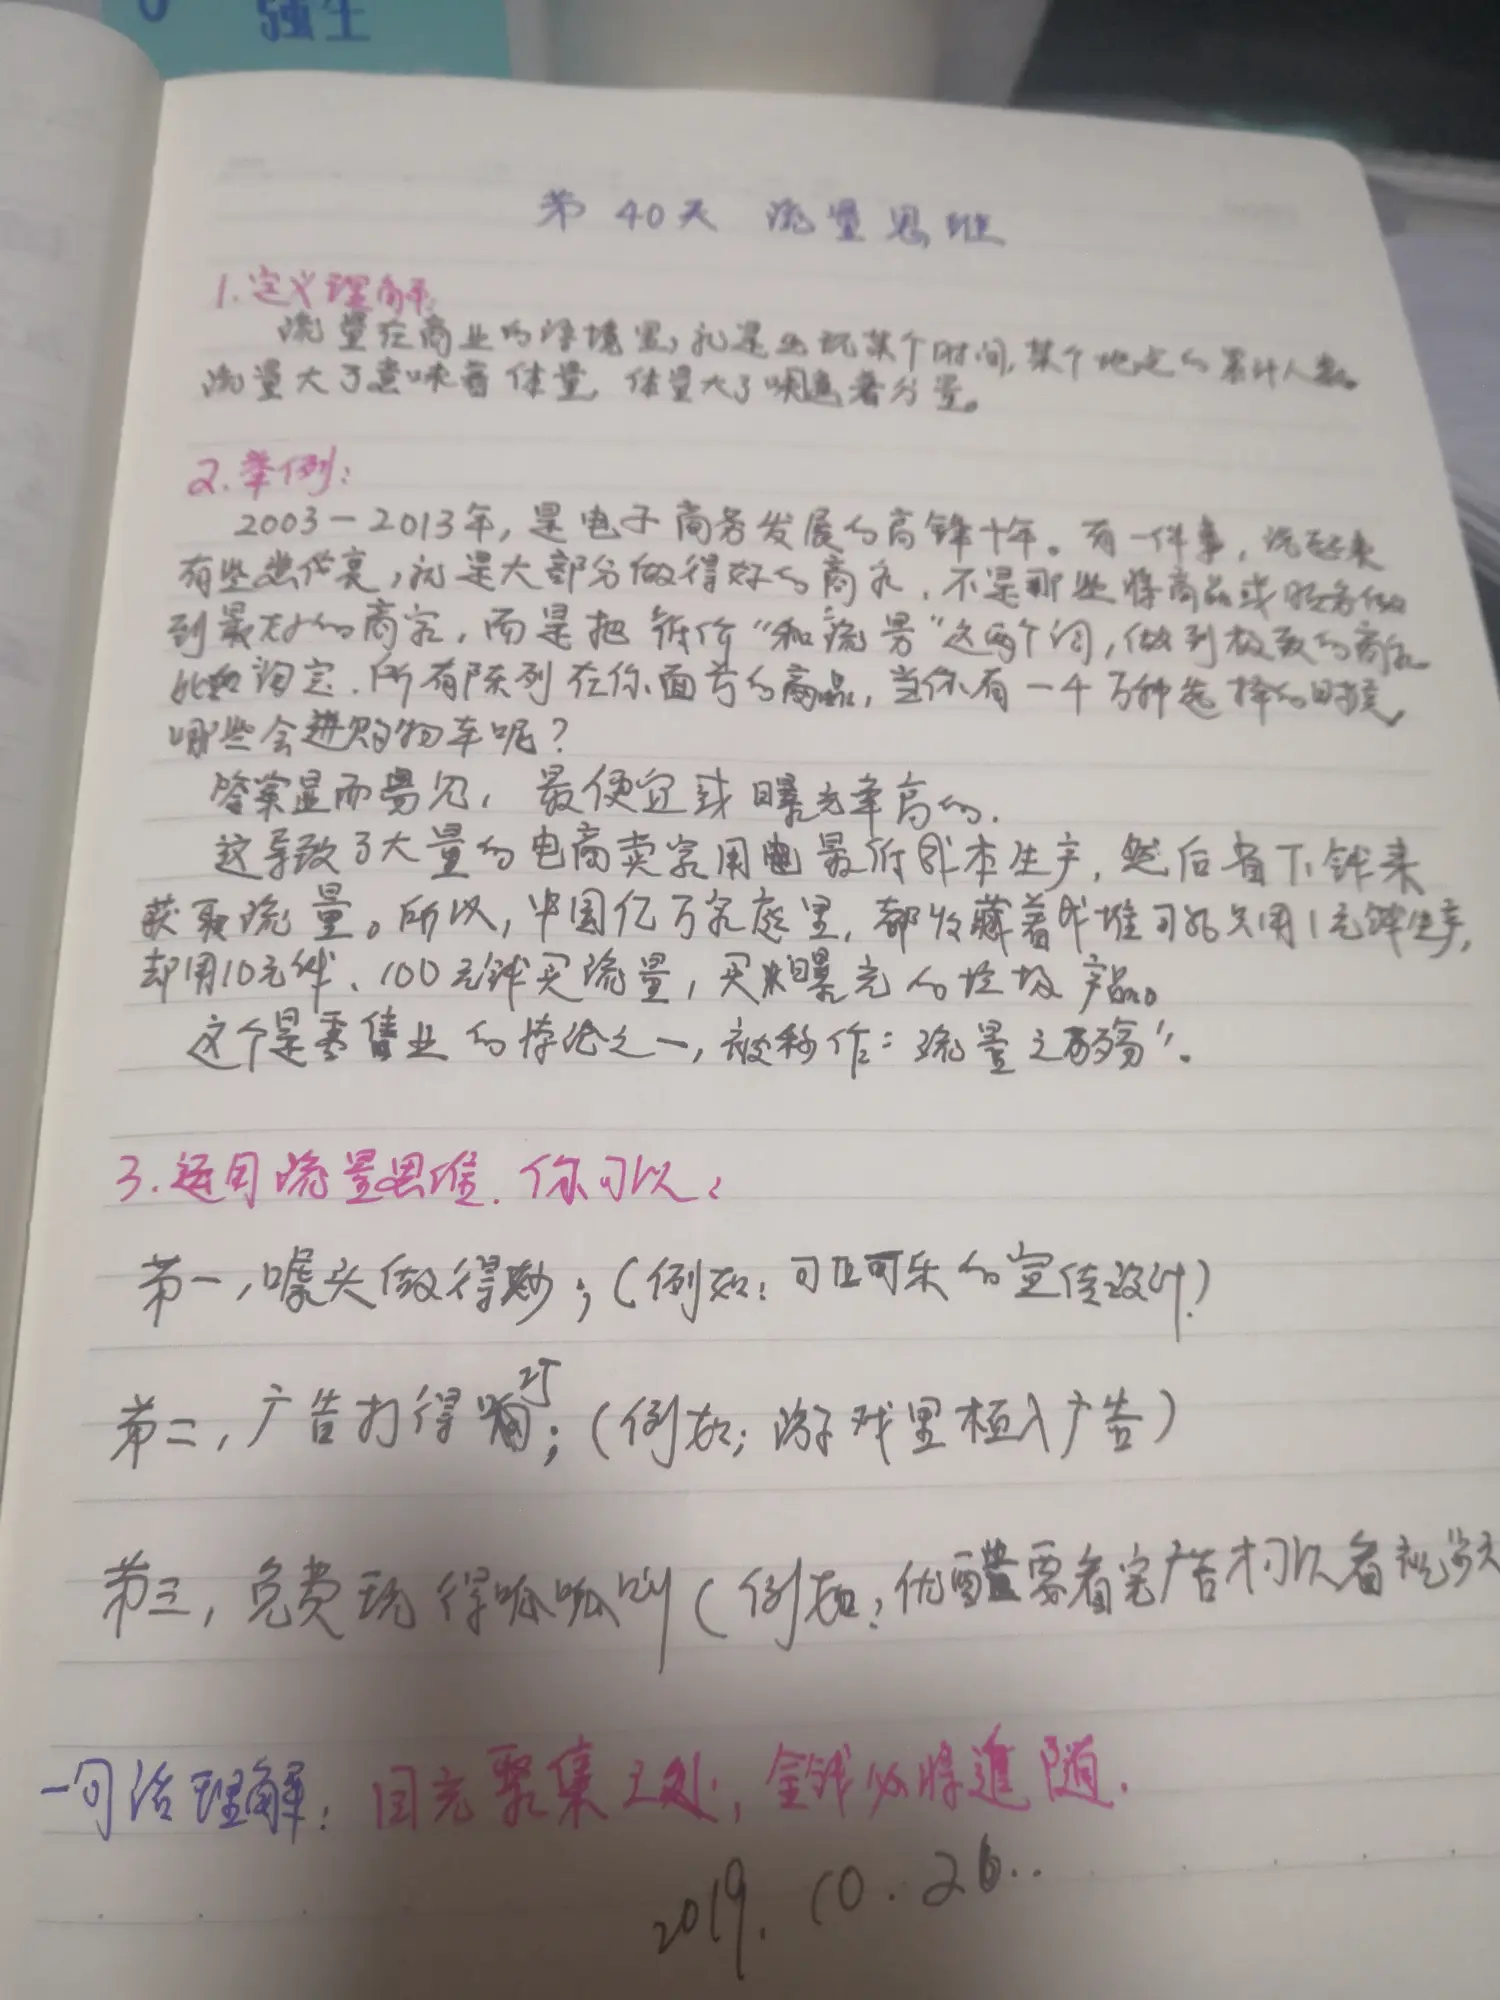 强生
第40天 流量思维
1.定义理解:
流量在商业的环境里,就是出现某个时间,某个地点的累计人数。
流量大了意味着体量,体量大了味着分量。
2.举例:
2003-2013年,是电子商务发展的高锋十年。有一件事,说起来
有些悲哀,就是大部分做得好的商家,不是那些将商品或服务做
到最好的商家,而是把低价“和流量”这两个词,做到极致的商家
比如淘宝.所有陈列在你面前的商品,当你有一千万种选择的时候,
哪些会进购物车呢?
答案显而易见,最便宜或曝光率高的.
这导致了大量的电商卖家用最低成本生产,然后省下钱来
获取流量。所以,中国亿万家庭里,都收藏着成堆可能只用1元钱生产,
却用10元钱、100元钱买流量,买来曝光的垃圾产品。
这个是零售业的悖论之一,被称作:流量之殇”.
3.运用流量思维.你可以:
第一,噱头做得妙;(例如:可口可乐的宣传设计)
第二,广告打得巧;(例如:游戏里植入广告)
第三,免费玩得呱呱叫(例如:优酷需看完广告才可以看视频
一句话理解:目光聚集之处,金钱必将追随.
2019.10.26..